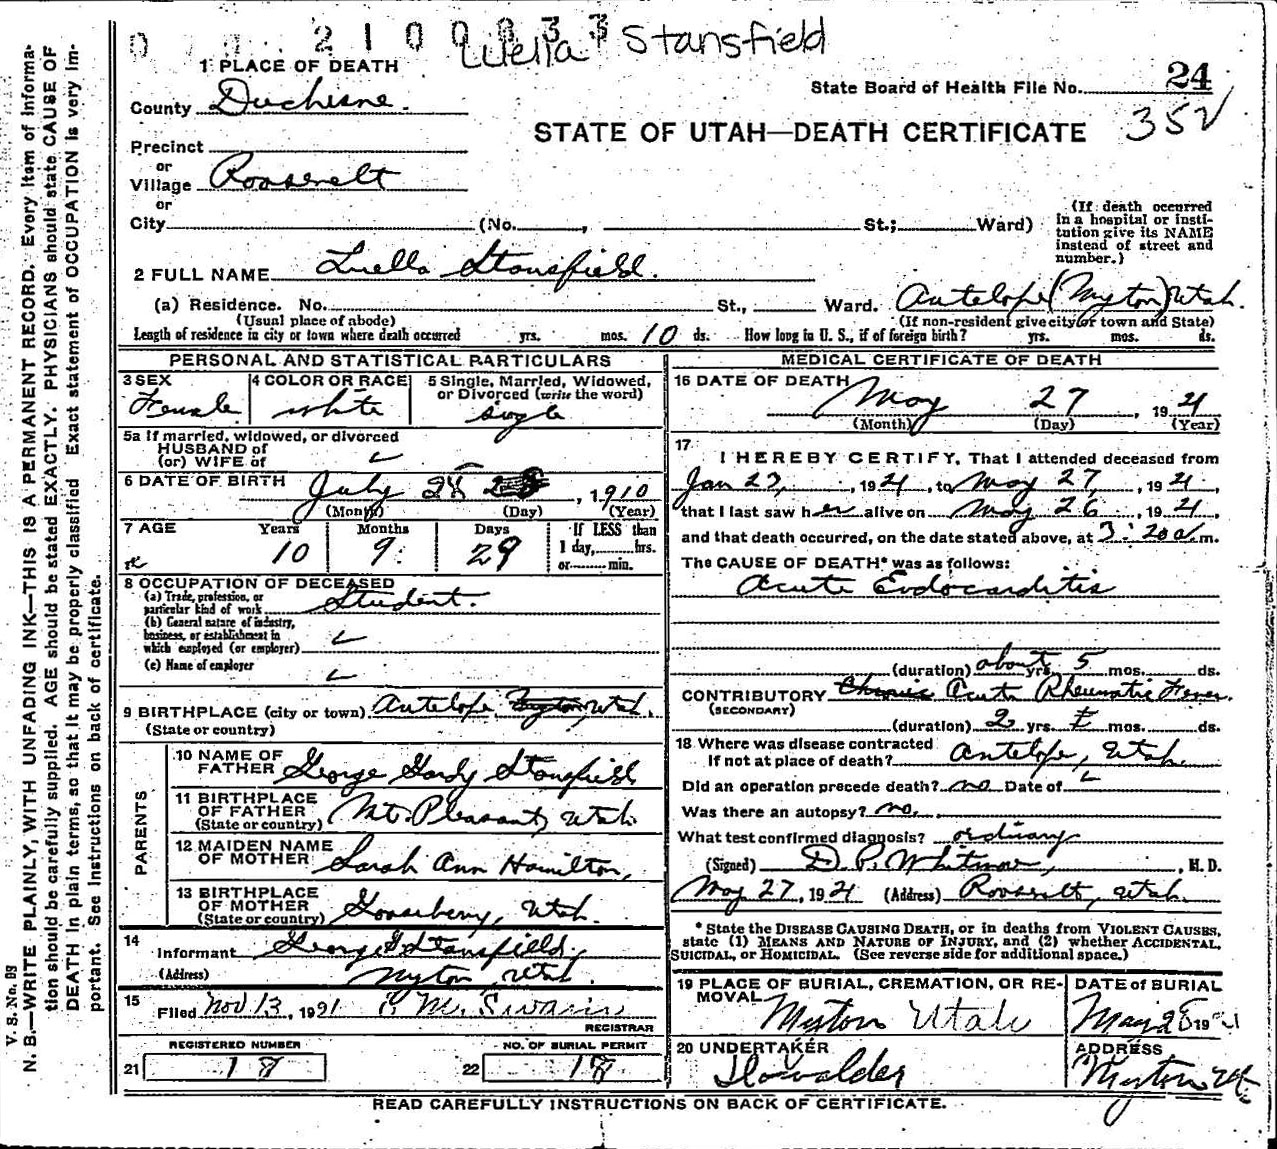 2100833
Luella Stansfield
1 PLACE OF DEATH
County Duchesne.
State Board of Health File No. 24
352
STATE OF UTAH—DEATH CERTIFICATE
Precinct
or
Village Roosevelt
or
City (No. , St.; Ward)
(If death occurred in a hospital or insti-
tution give its NAME
instead of street and
number.)
2 FULL NAME Luella Stansfield.
(a) Residence. No. St., Ward. Antelope (Myton) Utah.
(Usual place of abode) (If non-resident give city or town and State)
Length of residence in city or town where death occurred yrs. mos. 10 ds. How long in U. S., if of foreign birth? yrs. mos. ds.
PERSONAL AND STATISTICAL PARTICULARS
3 SEX
Female
4 COLOR OR RACE
white
5 Single, Married, Widowed,
or Divorced (write the word)
single
5a If married, widowed, or divorced
HUSBAND of
(or) WIFE of
6 DATE OF BIRTH July 28 , 1910
(Month) (Day) (Year)
7 AGE Years Months Days If LESS than
1 day, hrs.
or min.
10 9 29
8 OCCUPATION OF DECEASED
(a) Trade, profession, or
particular kind of work Student.
(b) General nature of industry,
business, or establishment in
which employed (or employer)
(c) Name of employer
9 BIRTHPLACE (city or town) Antelope Myton, Utah.
(State or country)
PARENTS
10 NAME OF
FATHER George Gardy Stansfield
11 BIRTHPLACE
OF FATHER Mt. Pleasant, Utah.
(State or country)
12 MAIDEN NAME
OF MOTHER Sarah Ann Hamilton,
13 BIRTHPLACE
OF MOTHER Gooseberry, Utah.
(State or country)
14
Informant George G Stansfield,
(Address) Myton, Utah.
15
Filed Nov 13, 1921 P. M. Swain
REGISTRAR
REGISTERED NUMBER
21 18
NO. OF BURIAL PERMIT
22 18
MEDICAL CERTIFICATE OF DEATH
16 DATE OF DEATH May 27 , 1921
(Month) (Day) (Year)
17
I HEREBY CERTIFY, That I attended deceased from
Jan 27, , 1921, to May 27 , 1921,
that I last saw her alive on May 26 , 1921,
and that death occurred, on the date stated above, at 3:20 a m.
The CAUSE OF DEATH* was as follows:
Acute Endocarditis
(duration) about yrs. 5 mos. ds.
CONTRIBUTORY Chronic Acute Rheumatic Fever.
(SECONDARY)
(duration) 2 yrs. mos. ds.
18 Where was disease contracted
If not at place of death? Antelope, Utah.
Did an operation precede death? no Date of
Was there an autopsy? no.
What test confirmed diagnosis? ordinary
(Signed) D. P. Whitmore , M. D.
May 27, 1921 (Address) Roosevelt, Utah.
* State the DISEASE CAUSING DEATH, or in deaths from VIOLENT CAUSES,
state (1) MEANS AND NATURE OF INJURY, and (2) whether ACCIDENTAL,
SUICIDAL, or HOMICIDAL. (See reverse side for additional space.)
19 PLACE OF BURIAL, CREMATION, OR RE-
MOVAL
Myton Utah
DATE of BURIAL
May 28 1921
20 UNDERTAKER
ADDRESS
Myton Ut
READ CAREFULLY INSTRUCTIONS ON BACK OF CERTIFICATE.
V. S. No. 89
N. B.—WRITE PLAINLY, WITH UNFADING INK—THIS IS A PERMANENT RECORD. Every item of informa-
tion should be carefully supplied. AGE should be stated EXACTLY. PHYSICIANS should state CAUSE OF
DEATH in plain terms, so that it may be properly classified. Exact statement of OCCUPATION is very im-
portant. See instructions on back of certificate.